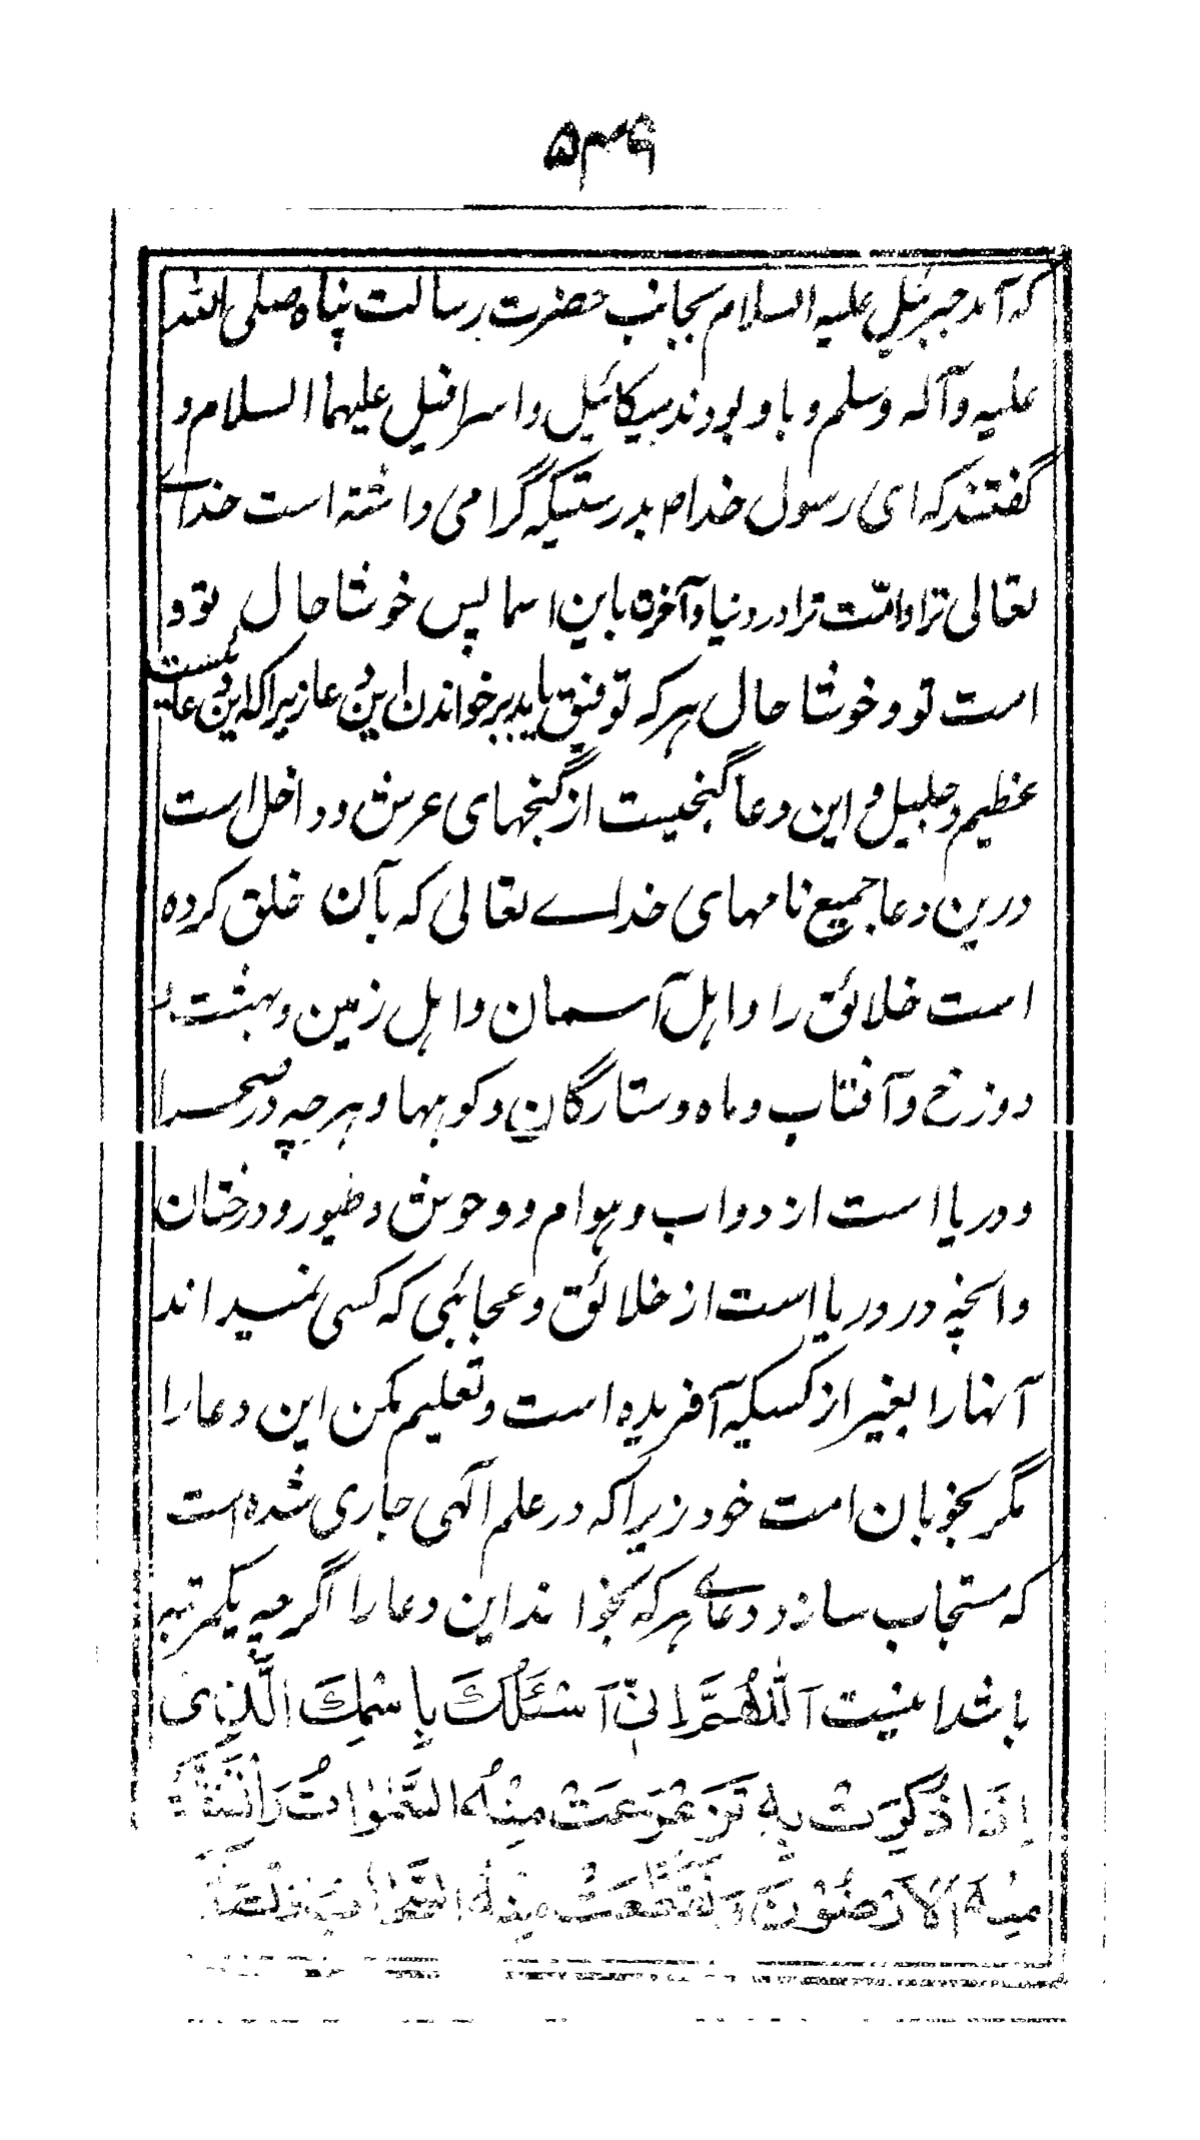 ۵۳۶
که آمد جبرئیل علیه السلام بجانب حضرت رسالت پناه صلی الله
علیه وآله وسلم و با و بودند میکائیل و اسرافیل علیهما السلام و
گفتند که ای رسول خدام بدرستیکه گرامی داشته است خداے
تعالی ترا و امّت ترا در دنیا و آخرة باین اسما پس خوشا حال تو و امت
است تو و خوشا حال هر که توفیق یابد بر خواندن این دعا زیرا که این دعا
عظیم و جلیل و این دعا گنجیست از گنجهای عرش و داخل است
درین دعا جمیع نامهای خداے تعالی که بآن خلق کرده
است خلائق را و اهل آسمان و اهل زمین و بهشت و
دوزخ و آفتاب و ماه و ستارگان و کوهها و هرچه در صحرا
و دریا است از دواب و هوام و وحوش و طیور و درختان
و آنچه در دریا است از خلائق و عجائبی که کسی نمیداند
آنها را بغیر از کسیکه آفریده است و تعلیم مکن این دعا را
مگر بخوبان امت خود زیرا که در علم آلهی جاری شده است
که مستجاب سازد دعاے هر که بخواند این دعا را اگرچه یکمرتبه
باشد اینست اَللّٰهُمَّ اِنّیْ اَسْئَلُكَ بِاسْمِكَ الَّذِیْ
اِذَا ذُكِرَتْ بِهٖ تَزَعْزَعَتْ مِنْهُ السَّمٰوَاتُ وَانْشَقَّتْ
مِنْهُ الْاَرَضُوْنَ وَتَقَطَّعَتْ مِنْهُ